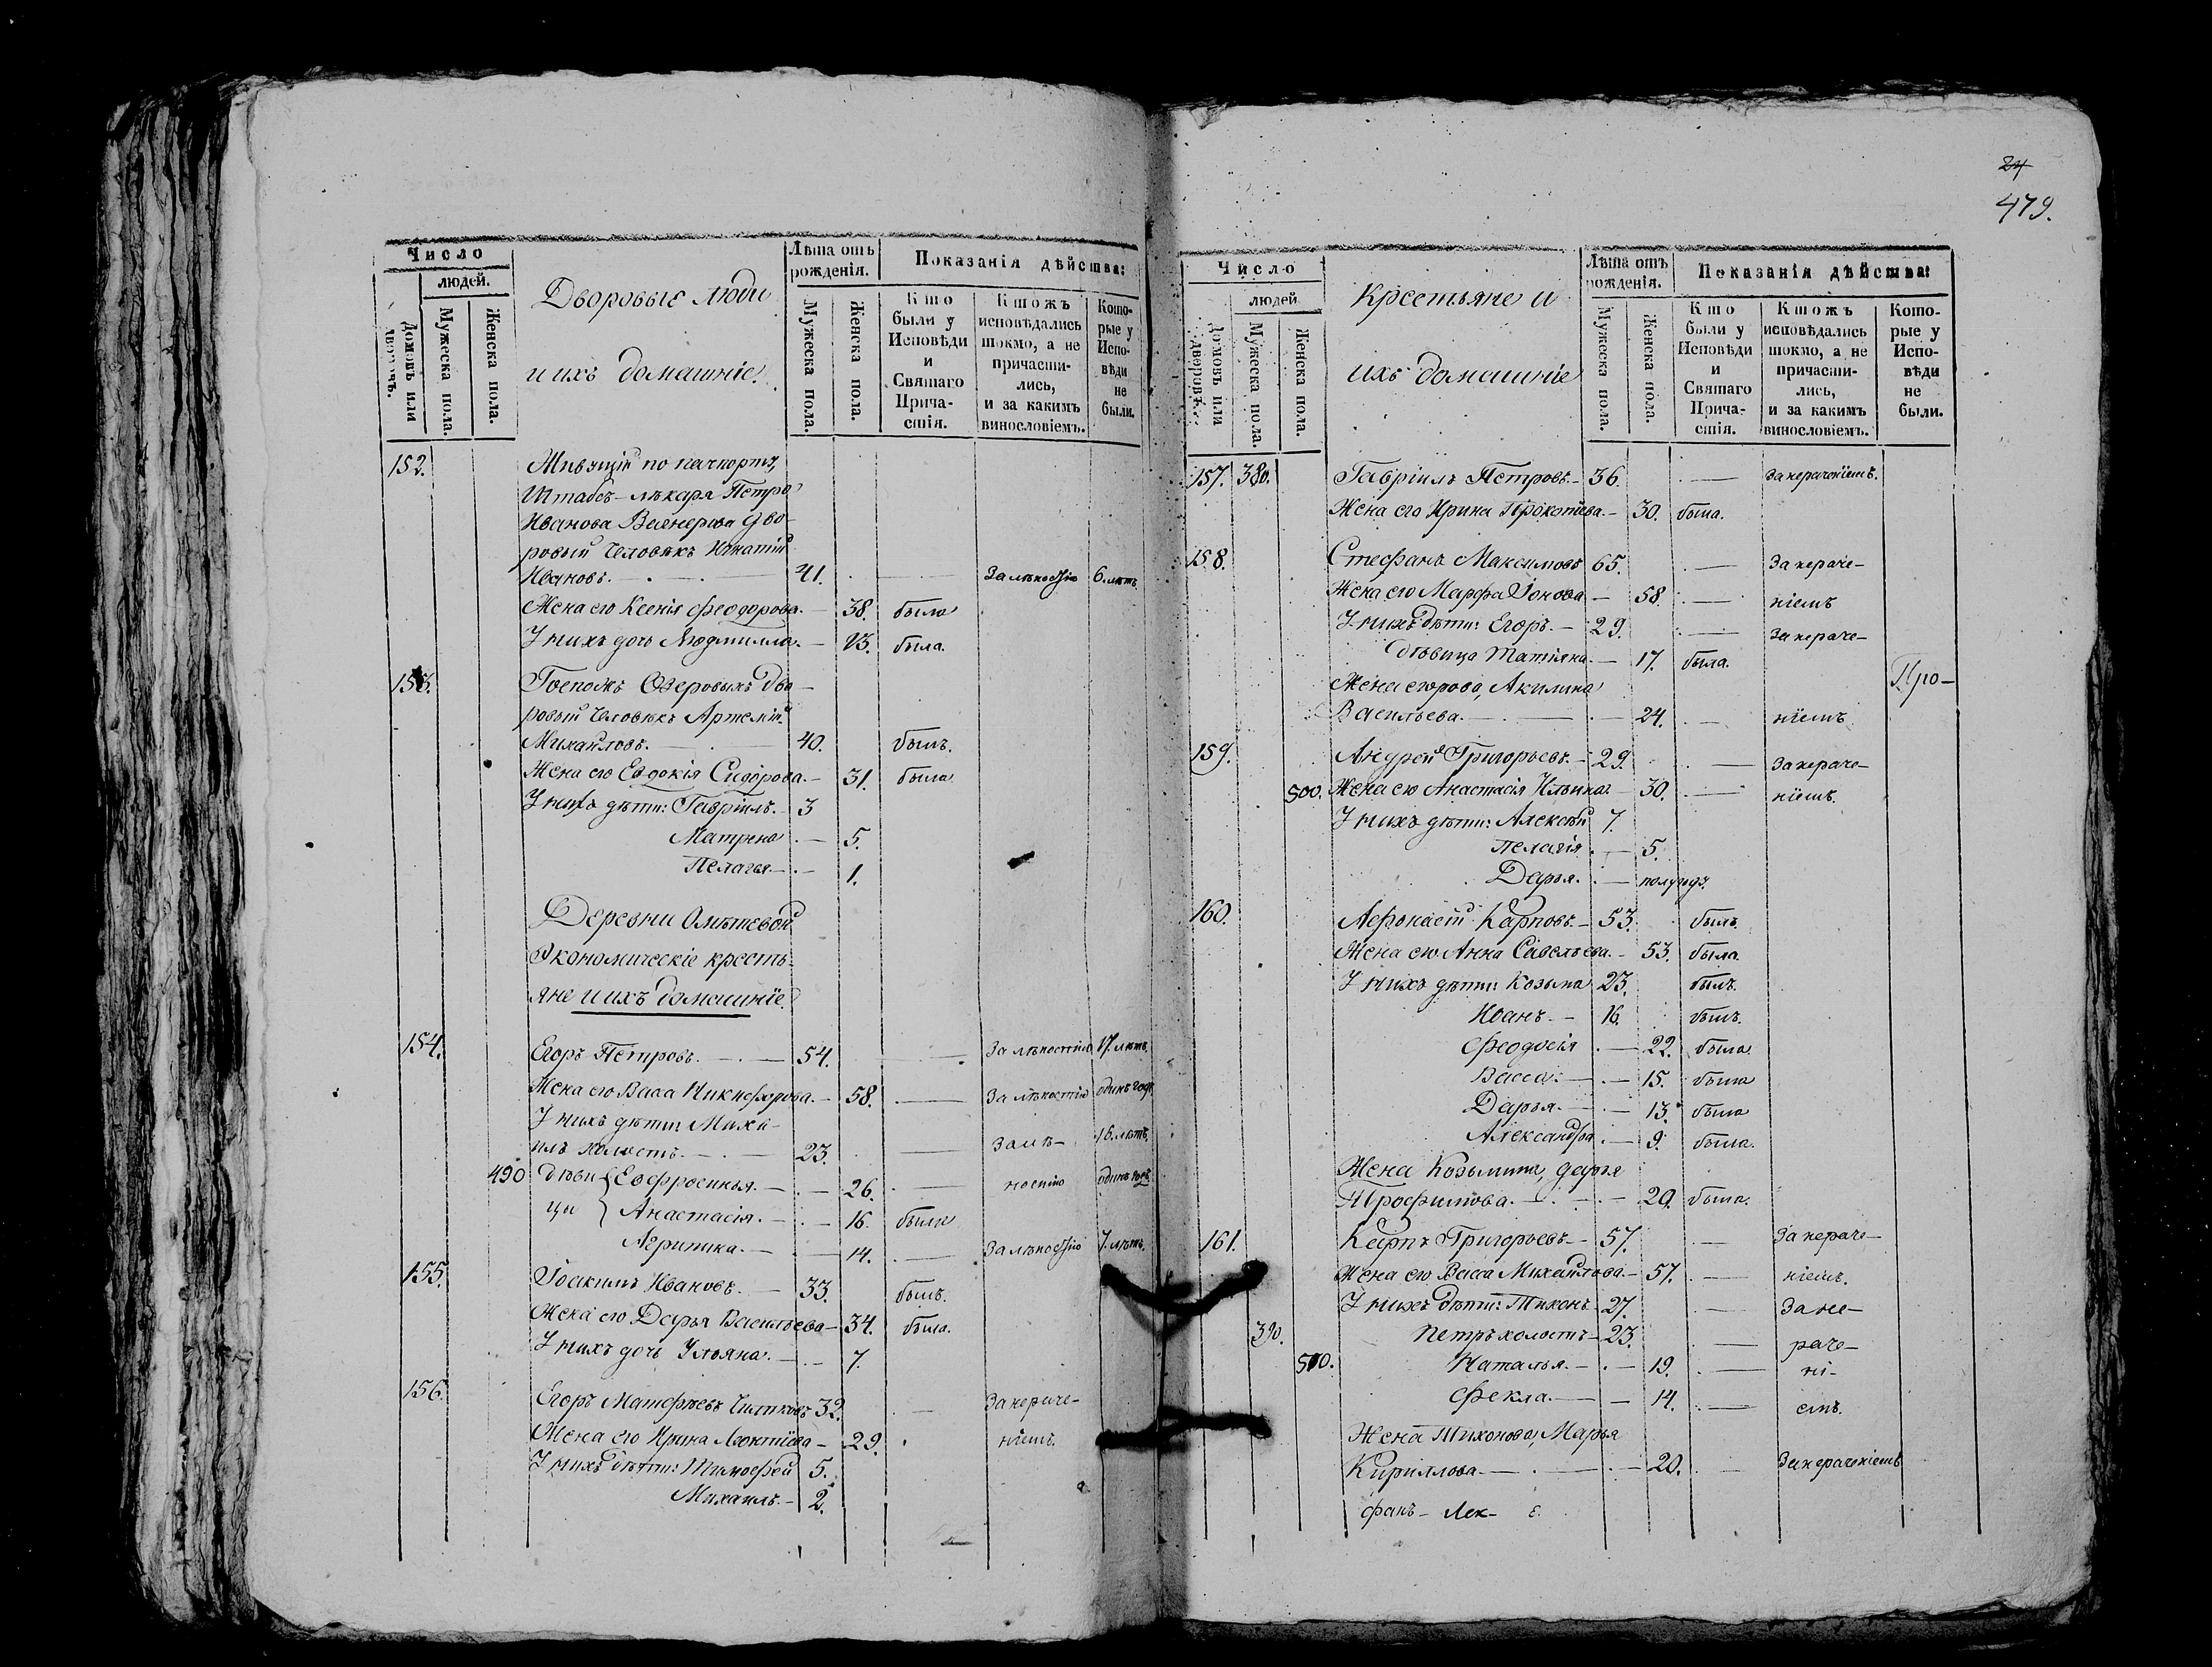 Число
людей.
Домовъ или дворовъ.
Мужеска пола.
Женска пола.
Дворовые люди
и ихъ домашніе.
Лѣта отъ рожденія.
Мужеска пола.
Женска пола.
Показанія дѣйства:
Кто были у Исповѣди и Святаго Причастія.
Ктожъ исповѣдались токмо, а не причастились, и за какимъ винословіемъ.
Которые у Исповѣди не были.
152. Живущій по пачпорту,
Штабсъ-лѣкаря Петра
Иванова дво-
ровый человѣкъ Игнатій
Ивановъ. 41. За лѣностію 6. лѣтъ
Жена его Ксенія Феодорова. 38. была
У нихъ дочь Людмилла. 13. была.
153. Господъ Озеровыхъ дво-
ровый человѣкъ Артемій
Михайловъ. 40. былъ.
Жена его Евдокія Сидорова. 31. была
У нихъ дѣти: Гавріилъ. 3
Матрена 5.
Пелагея 1.
Деревни Олѣтевой
Экономическіе кресть-
яне и ихъ домашніе
154. Егоръ Петровъ. 54. За лѣностію 17. лѣтъ.
Жена его Васса Никифорова. 58. За лѣностію одинъ годъ.
У нихъ дѣти: Миха-
илъ холостъ. 23. За лѣ- 16. лѣтъ.
490 дѣви- { Евфросинья. 26. ностію одинъ годъ
цы { Анастасія. 16. была
Агрипина. 14. За лѣностію 7. лѣтъ.
155. Іоакимъ Ивановъ. 33. былъ.
Жена его Дарья Васильева 34. была.
У нихъ дочь Ульяна. 7.
156. Егоръ Матфѣевъ 32. За нераче-
Жена его Ирина Леонтіева 29. ніемъ.
У нихъ дѣти: Тимофей 5.
Михаилъ. 2.
24
479.
Число
людей
Домовъ или дворовъ.
Мужеска пола.
Женска пола.
Крестьяне и
ихъ домашніе
Лѣта отъ рожденія.
Мужеска пола.
Женска пола.
Показанія дѣйства:
Кто были у Исповѣди и Святаго Причастія.
Ктожъ исповѣдались токмо, а не причастились, и за какимъ винословіемъ.
Которые у Исповѣди не были.
157. 380. Гавріилъ Петровъ. 36. За нераченіемъ.
Жена его Ирина Прокопіева. 30. была.
158. Стефанъ Максимовъ 65. За нераче-
Жена его Марфа Іонова 58. ніемъ
У нихъ дѣти: Егоръ. 29. За нераче-
дѣвица Татіяна. 17. была.
Про-
Жена егорова, Акилина
Васильева. 24. ніемъ
159. Андрей Григорьевъ. 29. За нераче-
500. Жена его Анастасія Ильина 30. ніемъ.
У нихъ дѣти: Алексѣй 7.
Пелагія 5.
Дарья. полугодъ.
160. Афонасій Карповъ. 53. былъ.
Жена его Анна Савельева. 53. была.
У нихъ дѣти: Козьма 23. былъ.
Иванъ. 16. былъ.
Феодосія 22. была.
Васса. 15. была
Дарья. 13. была
Александра 9. была.
Жена Козьмина, Дарья
Трофимова. 20. была.
161. Карпъ Григорьевъ 57. За нераче-
Жена его Васса Михайлова. 57. ніемъ.
У нихъ дѣти: Тихонъ 27. За не-
390. Петръ холостъ 23. раче-
510. Наталья. 19. ні-
Фекла. 14. емъ.
Жена Тихонова, Марья
Кириллова 20. За нераченіемъ
фанъ- Лек-